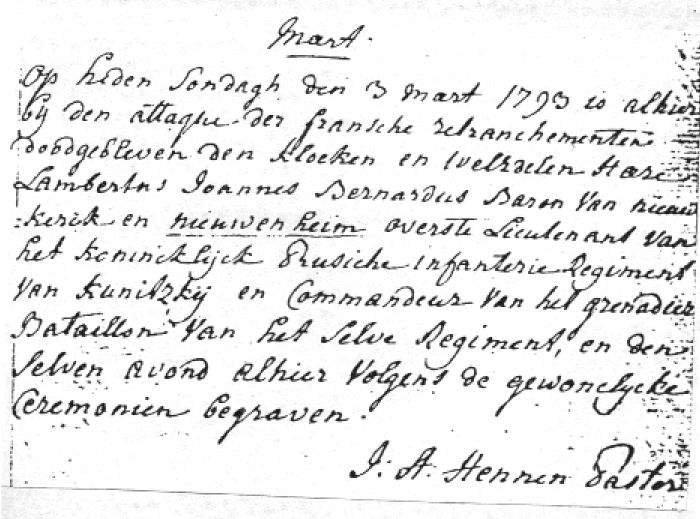 Mart.
Op heden Sondagh den 3 Mart 1793 is alhier
bij den attaque der fransche retranchementen
doodgebleven den kloeken en welEdelen Heere
Lambertus Joannes Bernardus Baron Van nieuw
:kerik en nieuwenheim overste Lieutenant van
het koninckljck Prusische infanterie Regiment
Van Kunitzkij en Commandeur Van het grenadier
Bataillon Van het selve Regiment, en den
selven avond alhier Volgens de gewonelycke
Ceremonien begraven.
J: A: Hennen Pastor